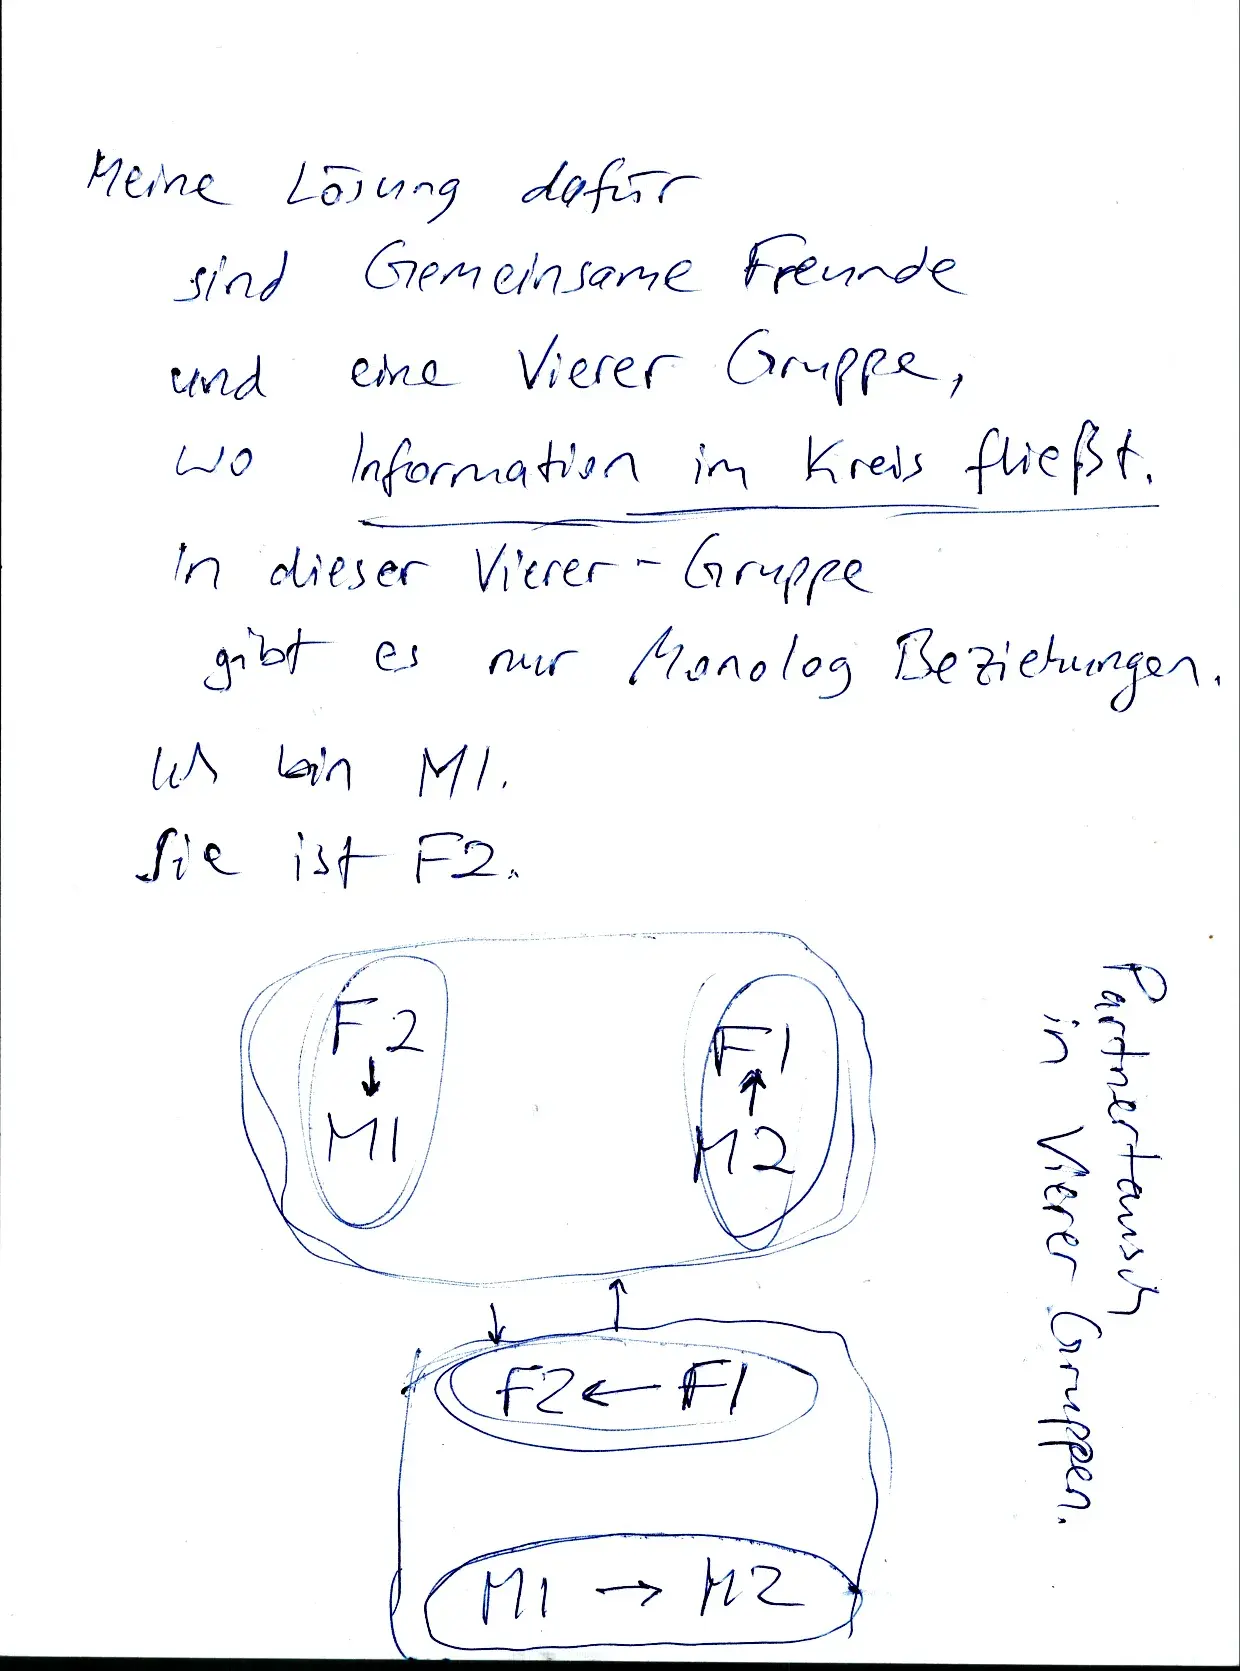 Meine Lösung dafür
sind Gemeinsame Freunde
und eine Vierer Gruppe,
wo Information im Kreis fließt.
In dieser Vierer-Gruppe
gibt es nur Monolog Beziehungen.
Ich bin M1.
Sie ist F2.
F2
↓
M1
F1
↑
M2
↓ ↑
F2 ← F1
M1 → M2
Partnertausch
in Vierer Gruppen.